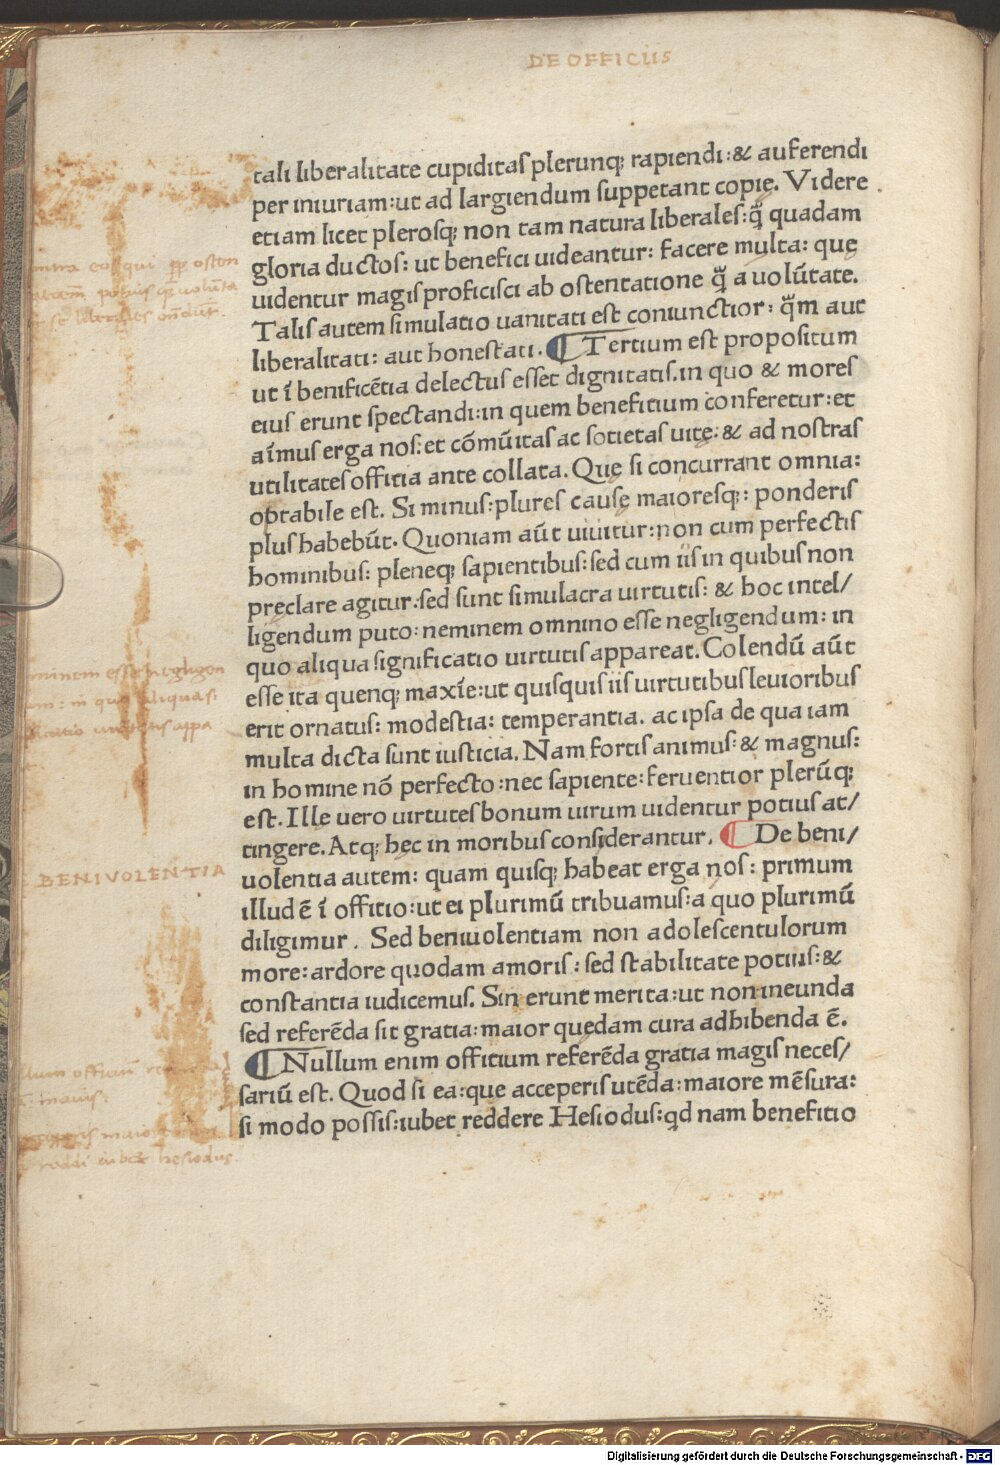 DE OFFICIIS
tali liberalitate cupiditaſ plerunqꝫ rapiendi:& auferendi
per iniuriam:ut ad largiendum ſuppetant copię. Videre
etiam licet pleroſqꝫ non tam natura liberaleſ:q̃ quadam
gloria ductoſ: ut benefici uideantur: facere multa: quę
uidentur magiſ proficiſci ab oſtentatione q̃ a volũtate.
Taliſ autem ſimulatio uanitati eſt coniunctior: q̃m aut
liberalitati: aut honeſtati. ¶ Tertium eſt propoſitum
ut ĩ benificẽtia delectuſ eſſet dignitatiſ.in quo & moreſ
eiuſ erunt ſpectandi:in quem benefitium conferetur:et
aĩmuſ erga noſ:et cõmũitaſ ac ſocietaſ uitę:& ad noſtraſ
utilitateſ offitia ante collata. Quę ſi concurrant omnia:
optabile eſt. Si minuſ:plureſ cauſę maioreſqꝫ: ponderiſ
pluſ habebũt. Quoniam aũt uiuitur:non cum perfectiſ
hominibuſ: pleneqꝫ ſapientibuſ:ſed cum iiſ in quibuſ non
preclare agitur.ſed ſunt ſimulacra uirtutiſ: & hoc intel/
ligendum puto: neminem omnino eſſe negligendum: in
quo aliqua ſignificatio uirtutiſ appareat. Colendũ aũt
eſſe ita quenqꝫ maxĩe:ut quiſquiſ iiſ uirtutibuſ leuioribuſ
erit ornatuſ: modeſtia: temperantia. ac ipſa de qua iam
multa dicta ſunt iuſticia. Nam fortiſ animuſ: & magnuſ:
in homine nõ perfecto:nec ſapiente:feruentior plerũqꝫ
eſt. Ille uero uirtuteſ bonum uirum uidentur potiuſ at/
tingere. Atqꝫ hęc in moribuſ conſiderantur. ¶ De beni/
uolentia autem: quam quiſqꝫ habeat erga noſ: primum
illud ẽ ĩ offitio:ut ei plurimũ tribuamuſ:a quo plurimũ
diligimur. Sed beniuolentiam non adoleſcentulorum
more:ardore quodam amoriſ:ſed ſtabilitate potiuſ:&
conſtantia iudicemuſ. Sin erunt merita:ut non ineunda
ſed referẽda ſit gratia:maior quędam cura adhibenda ẽ.
¶ Nullum enim offitium referẽda gratia magiſ neceſ/
ſariũ eſt. Quod ſi ea:que acceperiſ utẽda:maiore mẽſura:
ſi modo poſſiſ:iubet reddere Heſioduſ:qd nam benefitio
BENIVOLENTIA
Digitalisierung gefördert durch die Deutsche Forschungsgemeinschaft - DFG